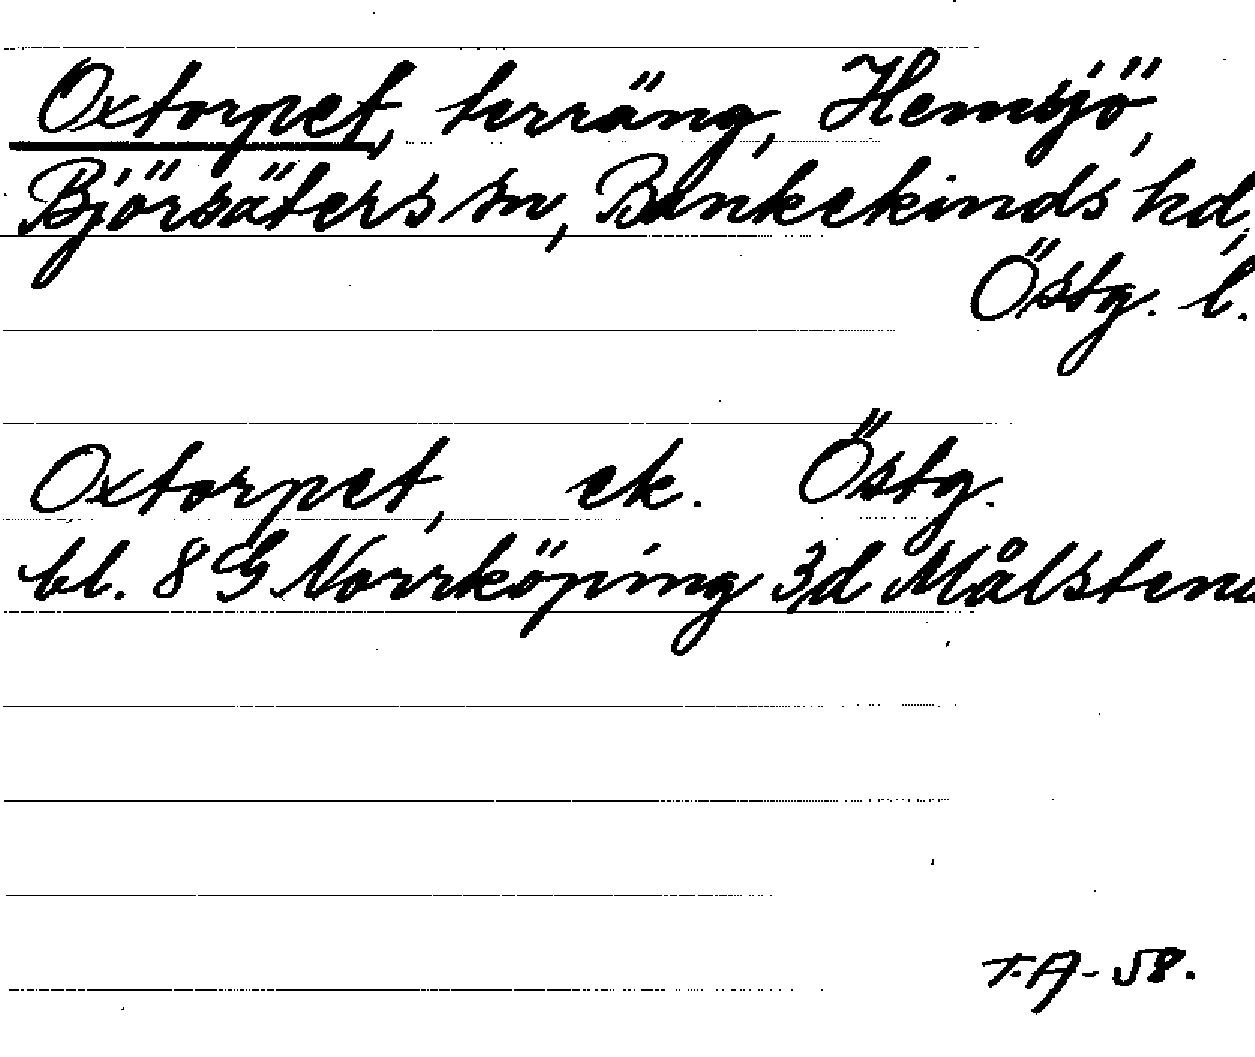 Oxtorpet, terräng, Hemsjö,
Björsäters sn, Bankekinds hd,
Östg. l.
Oxtorpet, ek. Östg.
bl. 8 G Norrköping 3d Målstena
T.A-58.